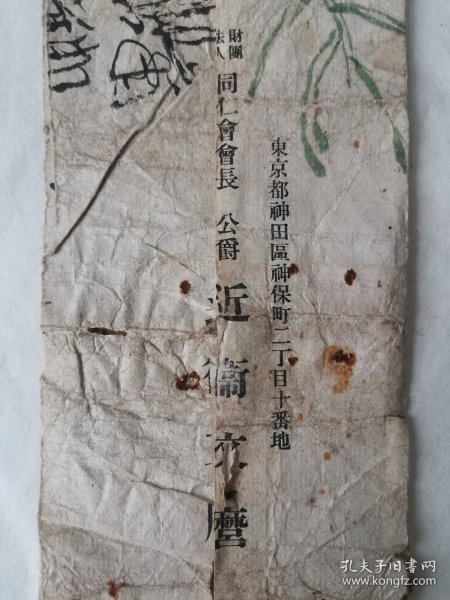 東京都神田區神保町二丁目十番地
財團法人 同仁會會長 公爵 近衞文麿
孔夫子旧书网
www.kongfz.com